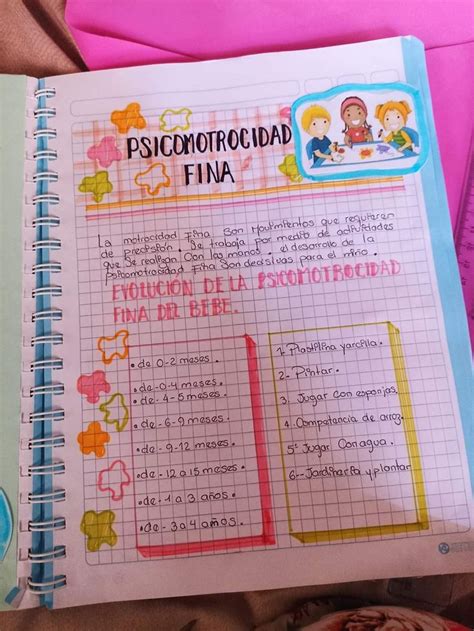 PSICOMOTROCIDAD
FINA
La motrocidad Fina Son Movimientos que requieren
de precisión. Se trabaja por medio de actividades
que se realison Con las manos. el desarollo de la
psicomotrocidad Fina Son decisivas para el niño.
EVOLUCIÓN DE LA PSICOMOTROCIDAD
FINA DEL BEBE.
• de 0-2 meses.
• de 0-4 meses.
• de - 4-5 meses.
• de - 6-9 meses.
• de - 9-12 meses.
• de - 12 a 15 meses.
• de - 1 a 3 años.
• de - 3 a 4 años.
1- Plastilina yarcilla.
2- Pintar.
3. Jugar con esponjas.
4. Competancia de arroz.
5- Jugar Con agua.
6-- Jardineria y plantar